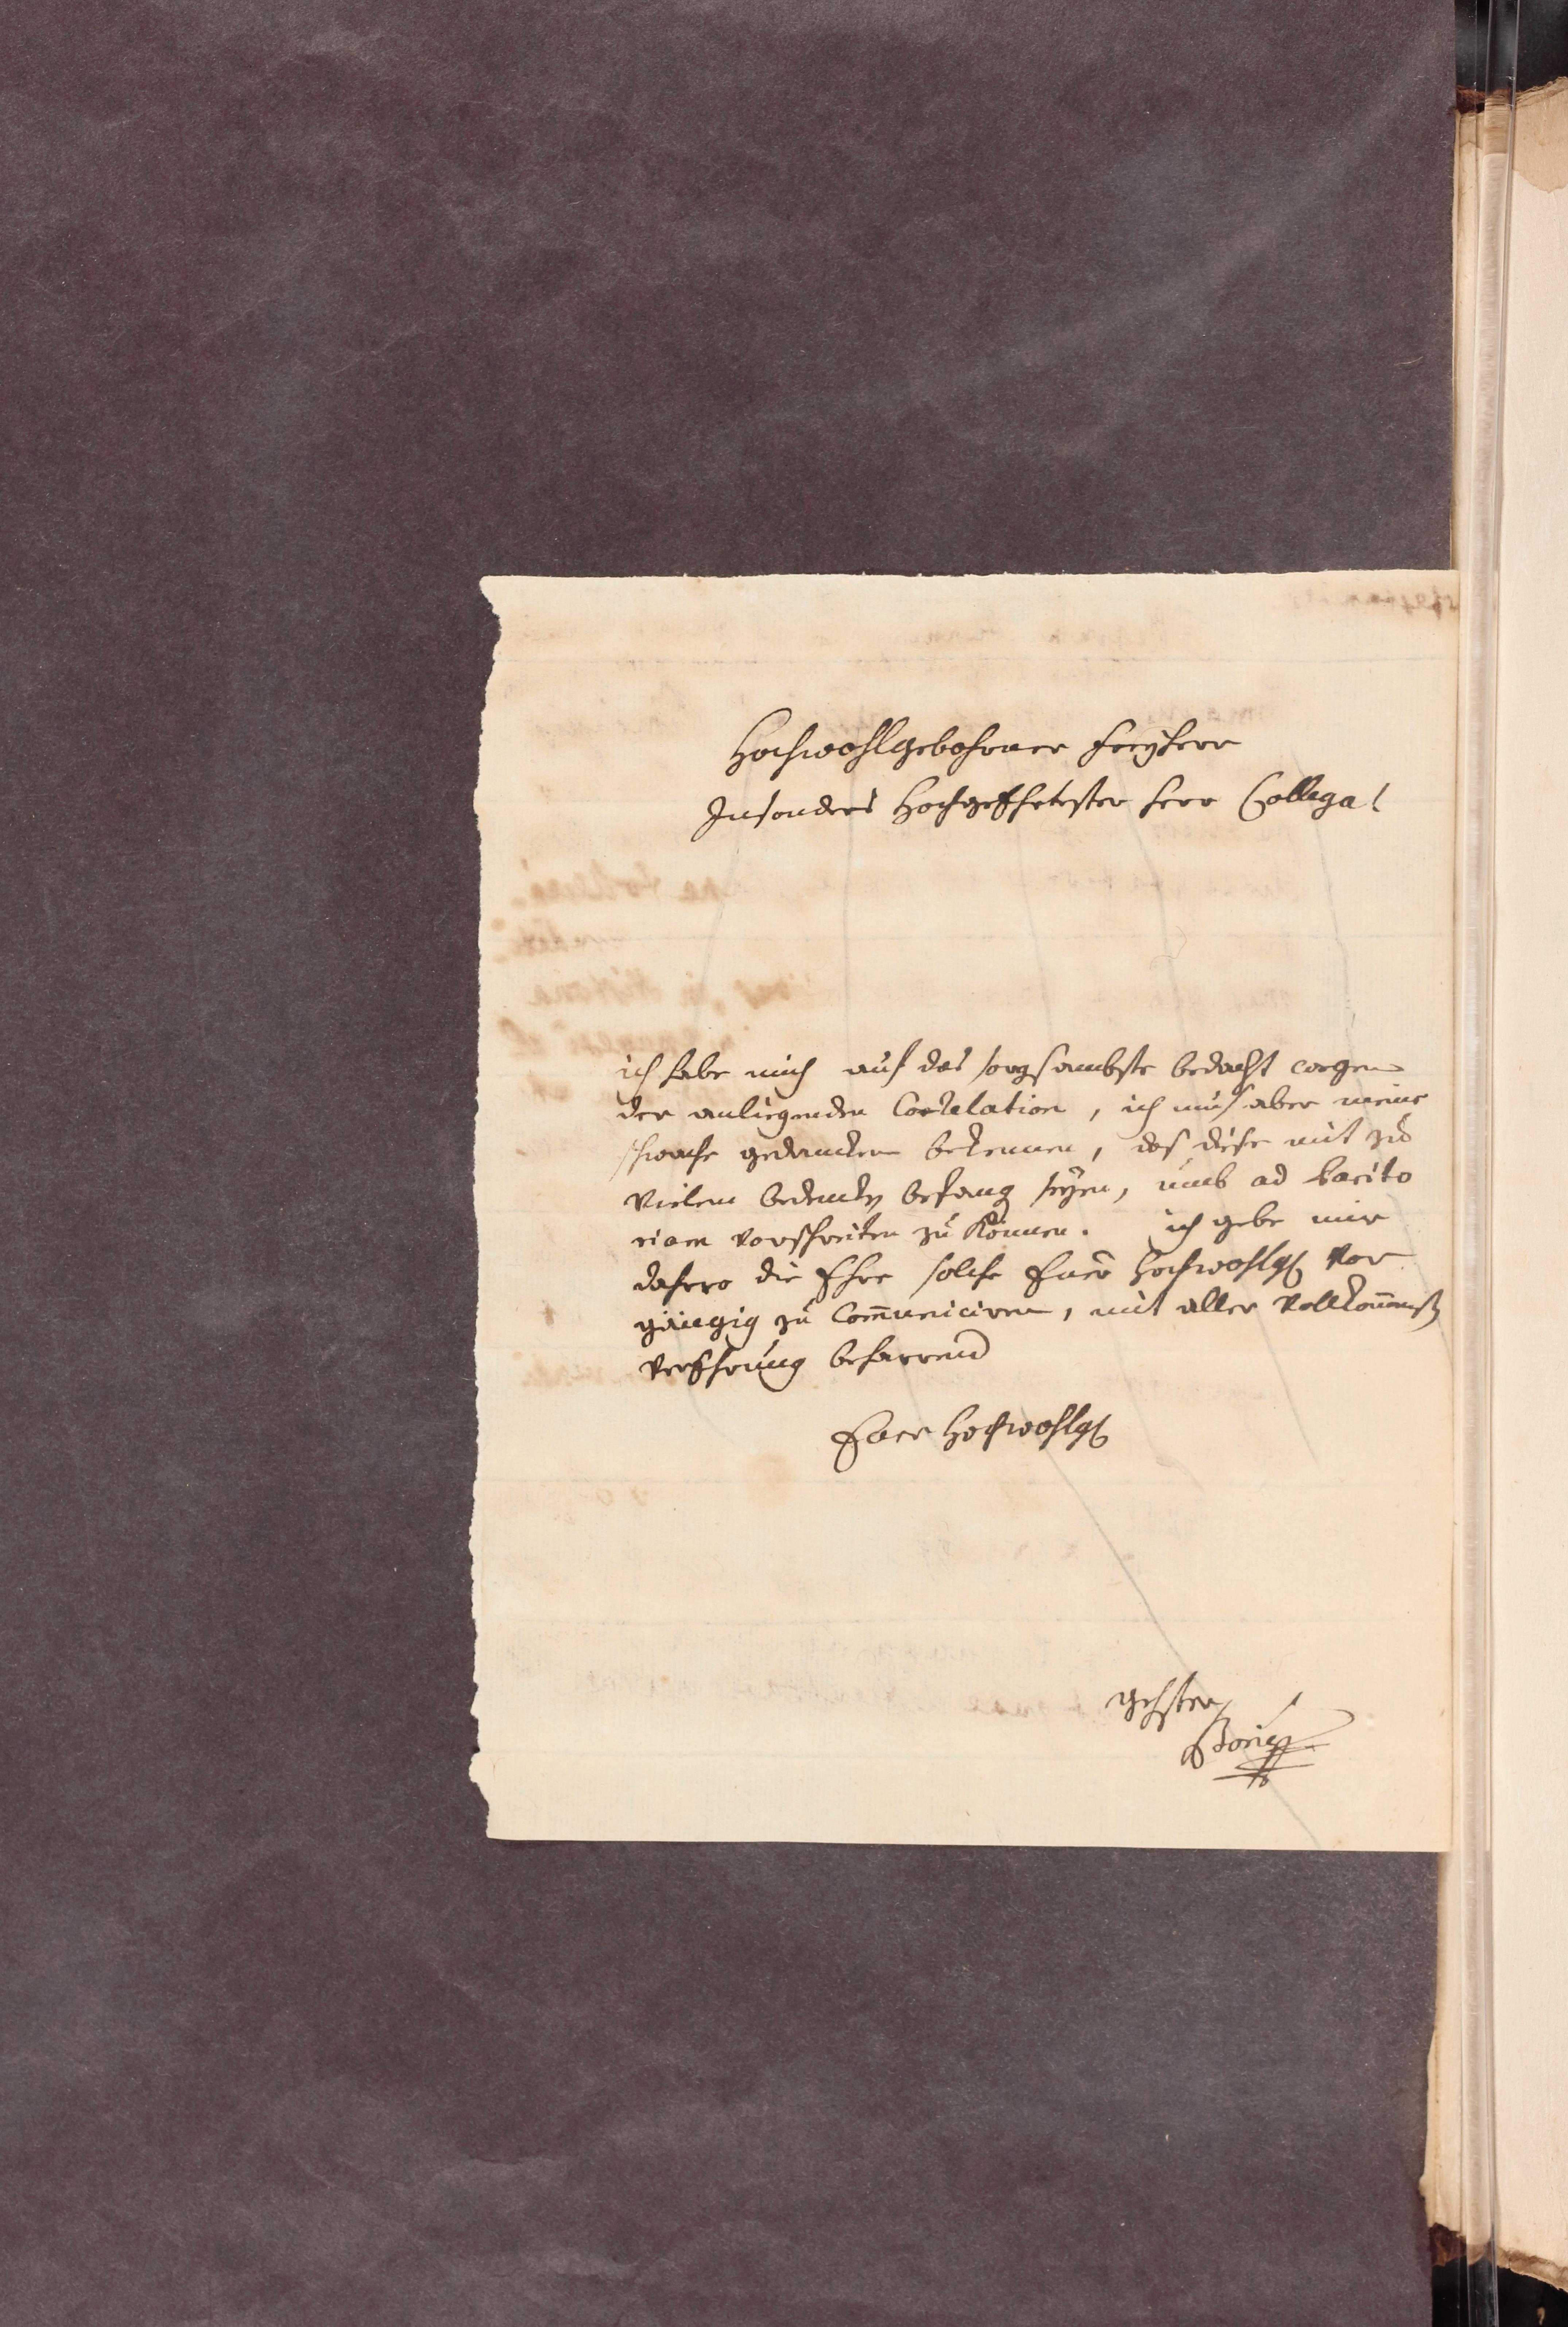 Hochwohlgebohrner Freyherr
Insonders Hochgeehrtester Herr Collega!
ich habe mich auf das sorgsambste bedacht wegen
der anliegenden Correlation, ich muß aber meine
schwache gedancken bekennen, das diese mit zu
vielem bedencken befang seyen, umb ad tacito
riam vorschreiten zu können. ich gebe mir
dahero die Ehre solche Euer Hochwohlg vor
gängig zu Communiciren, mit aller Vollkommenst
Verehrung beharrend
Euer Hochwohlg
ghster
Borie